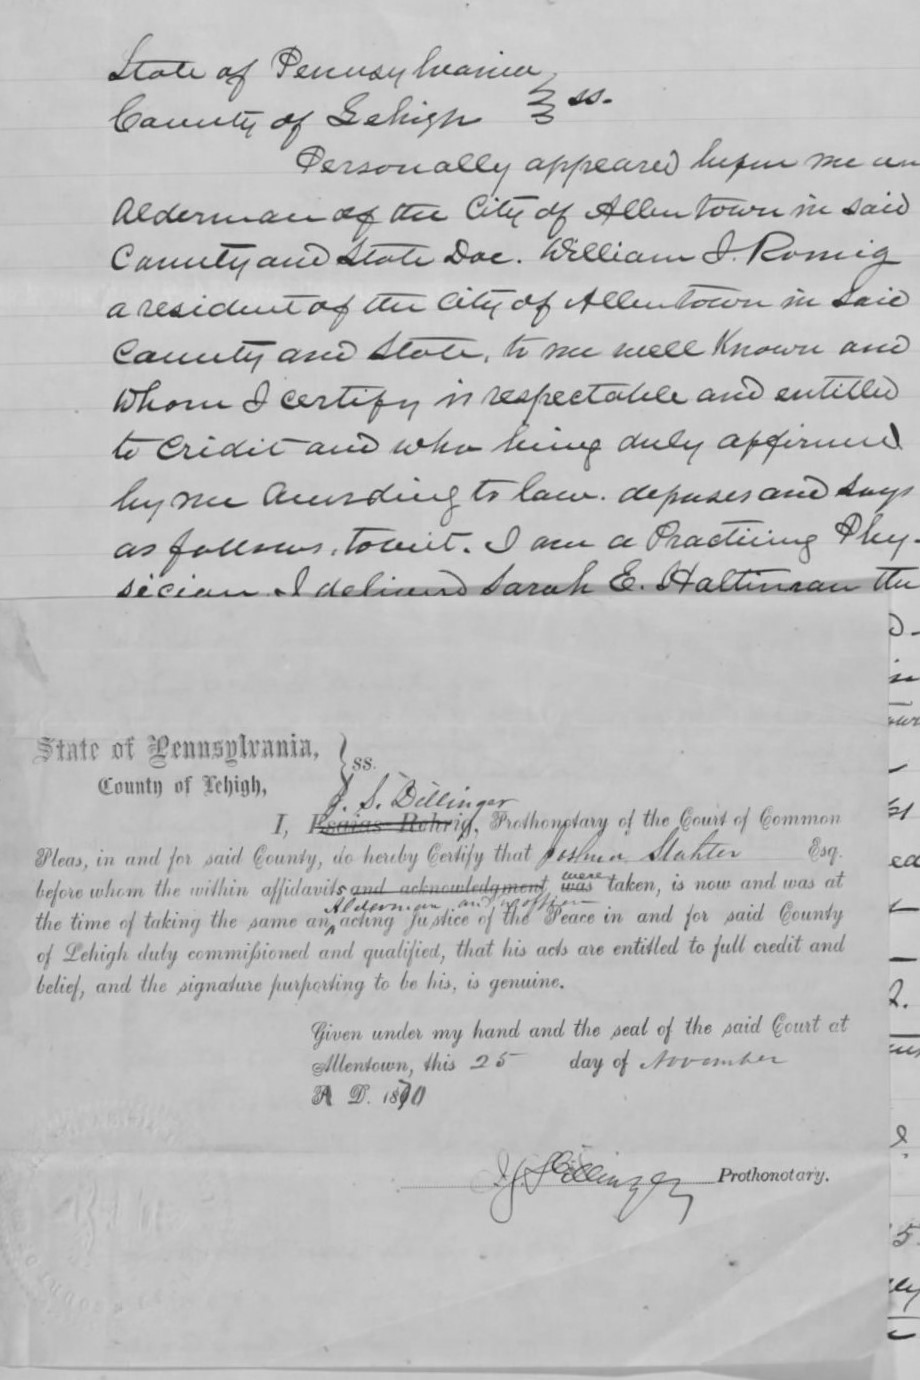 State of Pennsylvania
County of Lehigh } ss.
Personally appeared before me an
Alderman of the City of Allentown in said
County and State Doc. William J. Romig
a resident of the City of Allentown in said
County and State, to me well Known and
Whom I certify is respectable and entitled
to Credit and who being duly affirmed
by me According to law. deposes and says
as follows, towit. I am a Practicing Phy-
sician. I delivered Sarah E. Haltiman the
State of Pennsylvania,
County of Lehigh, } ss.
J. S. Dillinger
I, Esaias Rehrig, Prothonotary of the Court of Common
Pleas, in and for said County, do hereby Certify that Joshua Stahler Esq.
were
before whom the within affidavits and acknowledgment was taken, is now and was at
Alderman and
the time of taking the same an acting Justice of the Peace in and for said County
of Lehigh duly commissioned and qualified, that his acts are entitled to full credit and
belief, and the signature purporting to be his, is genuine.
Given under my hand and the seal of the said Court at
Allentown, this 25 day of November
A D. 1870
J S Dillinger Prothonotary.